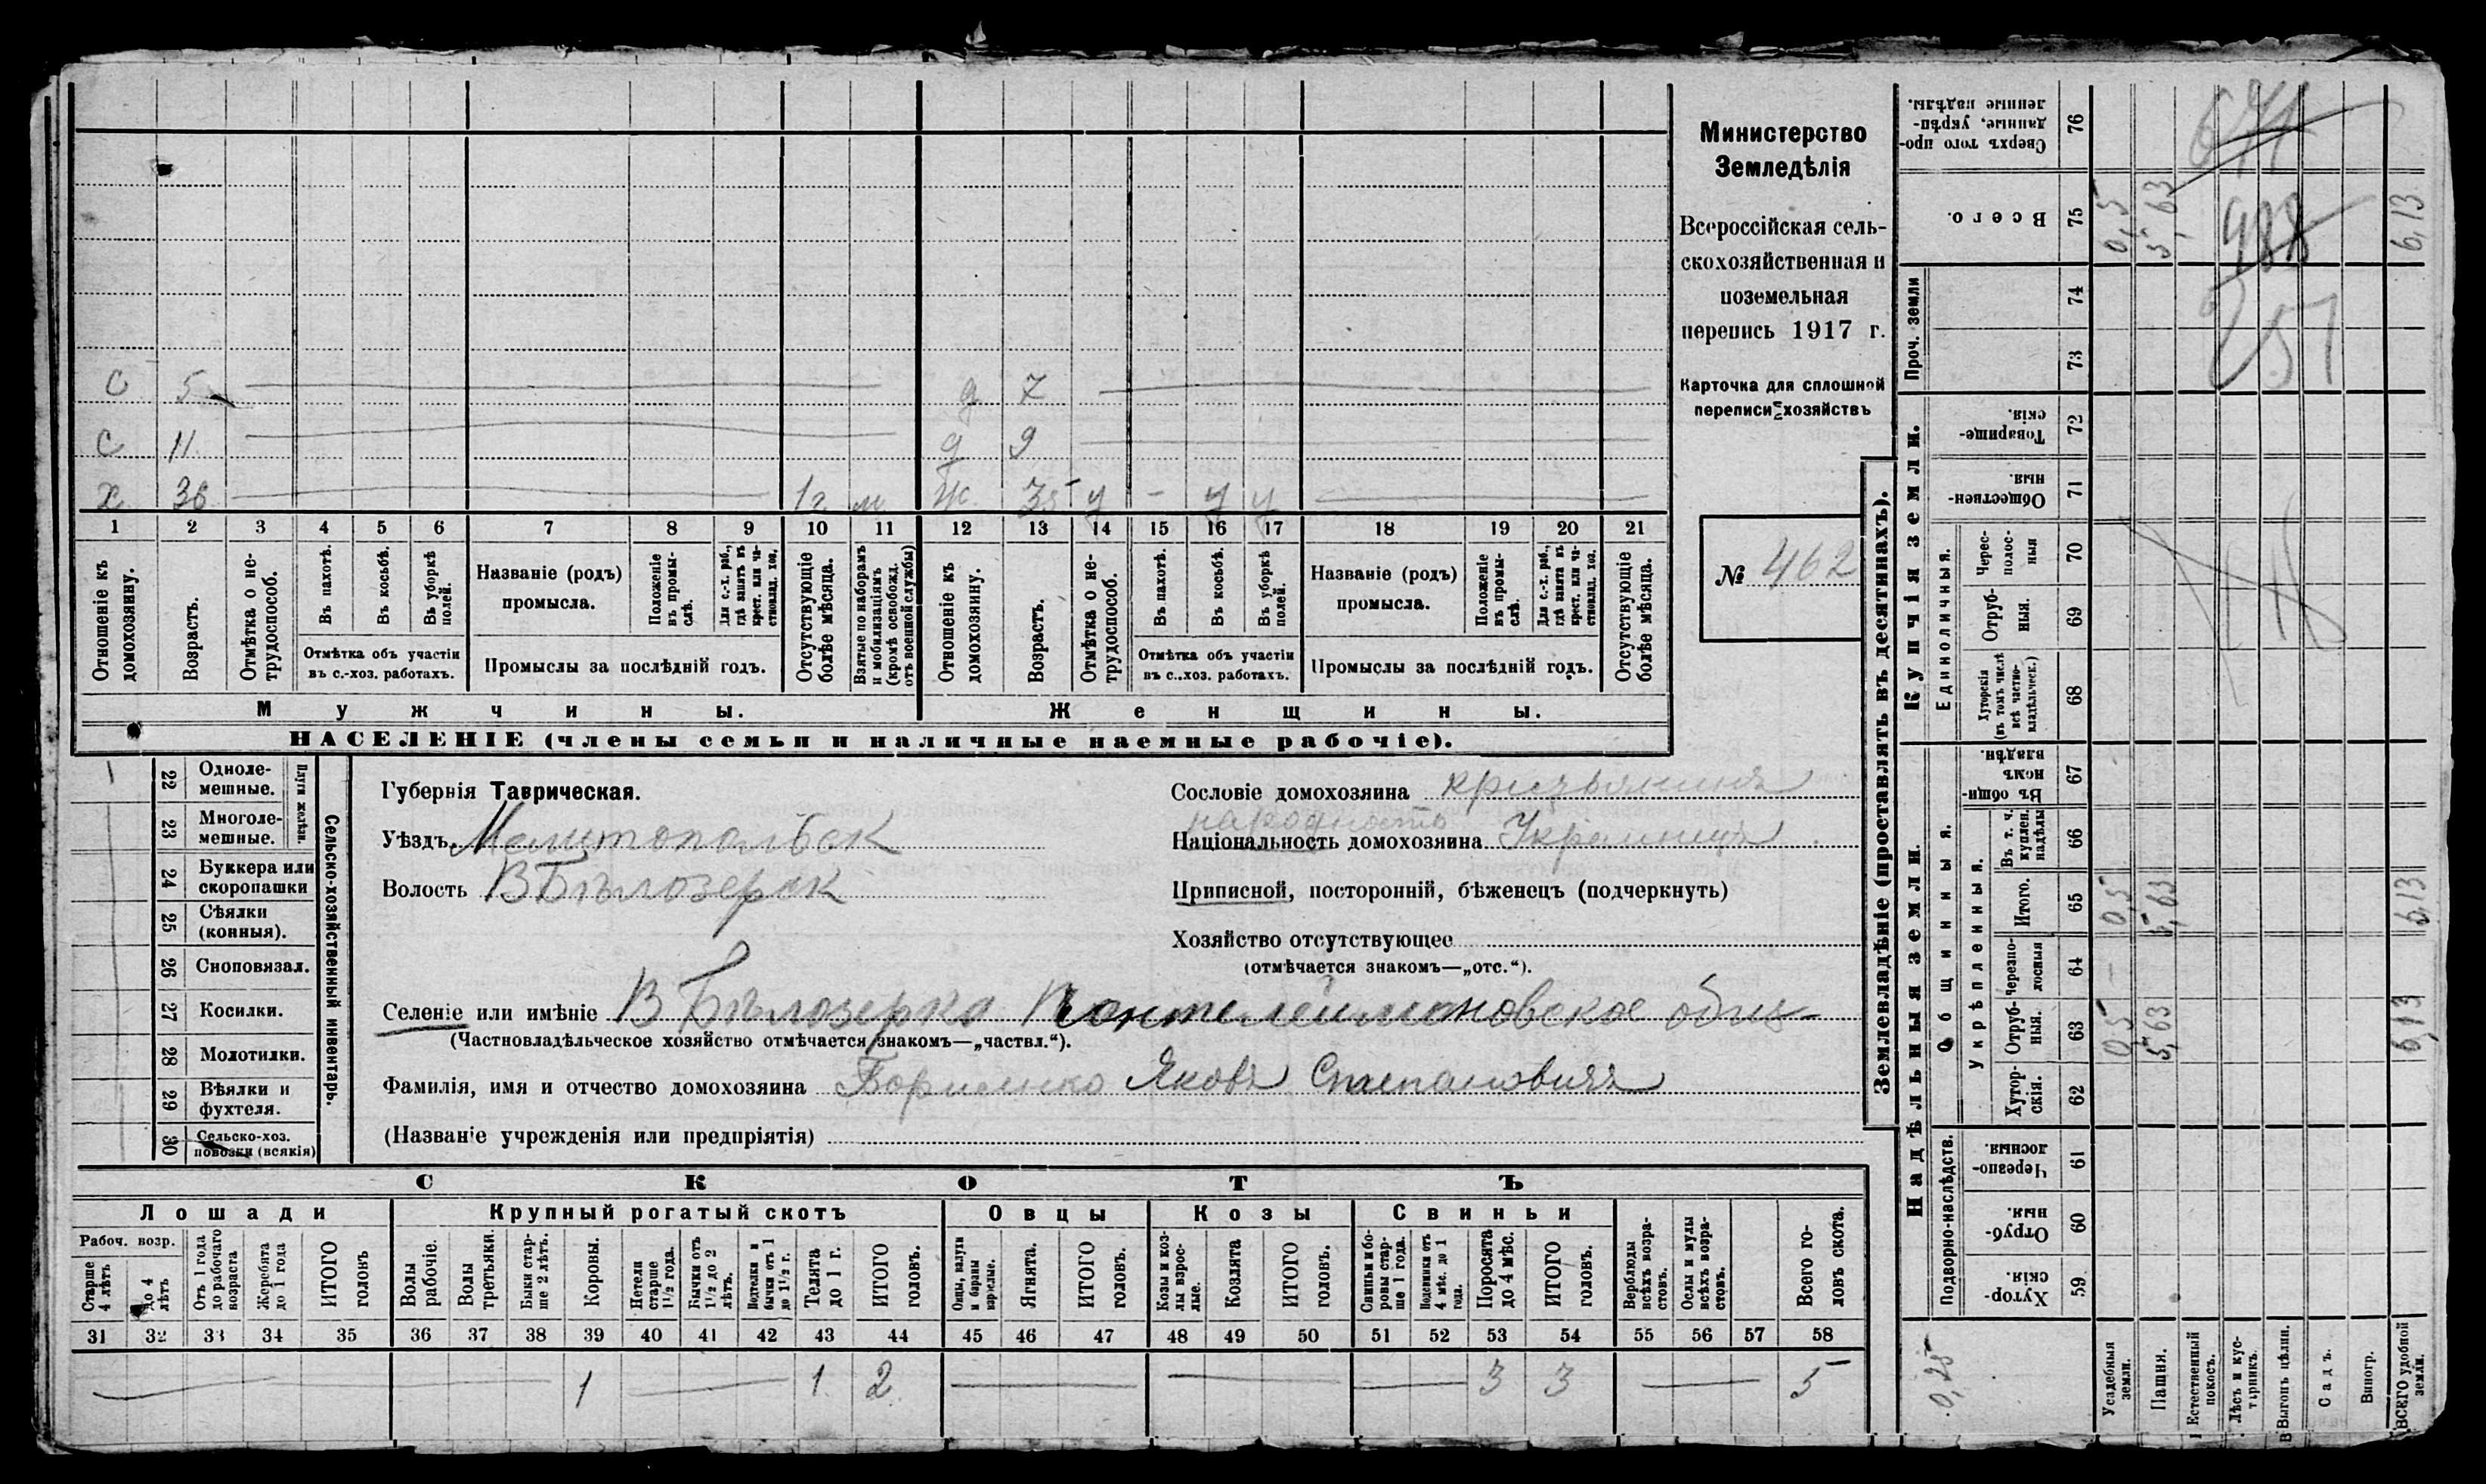 Министерство
Земледѣлія
Всероссійская сель-
скохозяйственная и
поземельная
перепись 1917 г.
Карточка для сплошной
переписи хозяйствъ
№ 462
С 5 д 7
С 11 д 9
Х 36 1 г м Ж 35 у - у у
1 2 3 4 5 6 7 8 9 10 11 12 13 14 15 16 17 18 19 20 21
Отношеніе къ домохозяину.
Возрастъ.
Отмѣтка о не-трудоспособ.
Въ пахотѣ.
Въ косьбѣ.
Въ уборкѣ полей.
Отмѣтка объ участіи
въ с.-хоз. работахъ.
Названіе (родъ)
промысла.
Положеніе въ промы-слѣ.
Для с.-х. раб., гдѣ занятъ въ крест. или ча-стновлад. хоз.
Промыслы за послѣдній годъ.
Отсутствующіе болѣе мѣсяца.
Взятые по наборамъ и мобилизаціямъ (кромѣ освобожд. отъ военной службы)
Отношеніе къ домохозяину.
Возрастъ.
Отмѣтка о не-трудоспособ.
Въ пахотѣ.
Въ косьбѣ.
Въ уборкѣ полей.
Отмѣтка объ участіи
въ с.-хоз. работахъ.
Названіе (родъ)
промысла.
Положеніе въ промы-слѣ.
Для с.-х. раб., гдѣ занята въ крест. или ча-стновлад. хоз.
Промыслы за послѣдній годъ.
Отсутствующіе болѣе мѣсяца.
Мужчины.
Женщины.
НАСЕЛЕНІЕ (члены семьи и наличные наемные рабочіе).
1 22 Одноле-мешные.
23 Многоле-мешные.
Плуги желѣзн.
24 Буккера или скоропашки
25 Сѣялки (конныя).
26 Сноповязал.
27 Косилки.
28 Молотилки.
29 Вѣялки и фухтеля.
30 Сельско-хоз. повозки (всякія)
Сельско-хозяйственный инвентарь.
Губернія Таврическая.
Уѣздъ Мелитопольск
Волость В Бѣлозерск
Сословіе домохозяина крестьянинъ
народность
Національность домохозяина Украинецъ
Приписной, посторонній, бѣженецъ (подчеркнуть)
Хозяйство отсутствующее
(отмѣчается знакомъ—„отс.“).
Селеніе или имѣніе В Бѣлозерка Пантелеимоновское общ-
(Частновладѣльческое хозяйство отмѣчается знакомъ—„частвл.“).
Фамилія, имя и отчество домохозяина Борисенко Яковъ Степановичъ
(Названіе учрежденія или предпріятія)
СКОТЪ
Лошади
Крупный рогатый скотъ
Овцы
Козы
Свиньи
Рабоч. возр.
Старше 4 лѣтъ
до 4 лѣтъ
Отъ 1 года до рабочаго возраста
Жеребята до 1 года
ИТОГО головъ
Волы рабочіе.
Волы третьяки.
Быки стар-ше 2 лѣтъ.
Коровы.
Нетели старше 1½ года.
Бычки отъ 1½ до 2 лѣтъ.
Подтелки и бычки отъ 1 до 1½ г.
Телята до 1 г.
ИТОГО головъ.
Овцы, валухи и бараны взрослые.
Ягнята.
ИТОГО головъ.
Козы и коз-лы взрос-лые.
Козлята
ИТОГО головъ.
Свиньи и бо-ровы стар-ше 1 года.
Подсвинки отъ 4 мѣс. до 1 года.
Поросята до 4 мѣс.
ИТОГО головъ.
Верблюды всѣхъ возра-стовъ.
Ослы и мулы всѣхъ возра-стовъ.
Всего го-ловъ скота.
31 32 33 34 35 36 37 38 39 40 41 42 43 44 45 46 47 48 49 50 51 52 53 54 55 56 57 58
1 1 2 3 3 5
Землевладѣніе (проставлять въ десятинахъ).
Купчія земли.
Надѣльныя земли.
Сверхъ того про-данные, укрѣп-ленные надѣлы. 76
Всего. 75 0,5 5,63 6,13
Проч. земли 74 73
Товарище-скія. 72
Обществен-ныя. 71
Единоличныя.
Черес-полос-ныя 70
Отруб-ныя. 69
Хуторскія (въ томъ числѣ всѣ частно-владѣльческ.) 68
Общинныя.
Въ общи-номъ владѣн. 67
Укрѣпленныя.
Въ т. ч. куплен. надѣлы 66
Итого. 65 0,5 5,63 6,13
Черезпо-лосныя 64
Отруб-ныя. 63 0,5 5,63 6,13
Хутор-скія. 62
Подворно-наслѣдств.
Черезпо-лосныя 61
Отруб-ныя. 60
Хутор-скія. 59
0,25
Усадебныя земли.
Пашня.
Естественный покосъ.
Лѣсъ и кус-тарникъ.
Выгонъ цѣлин.
Садъ.
Виногр.
ВСЕГО удобной земли.
671
988